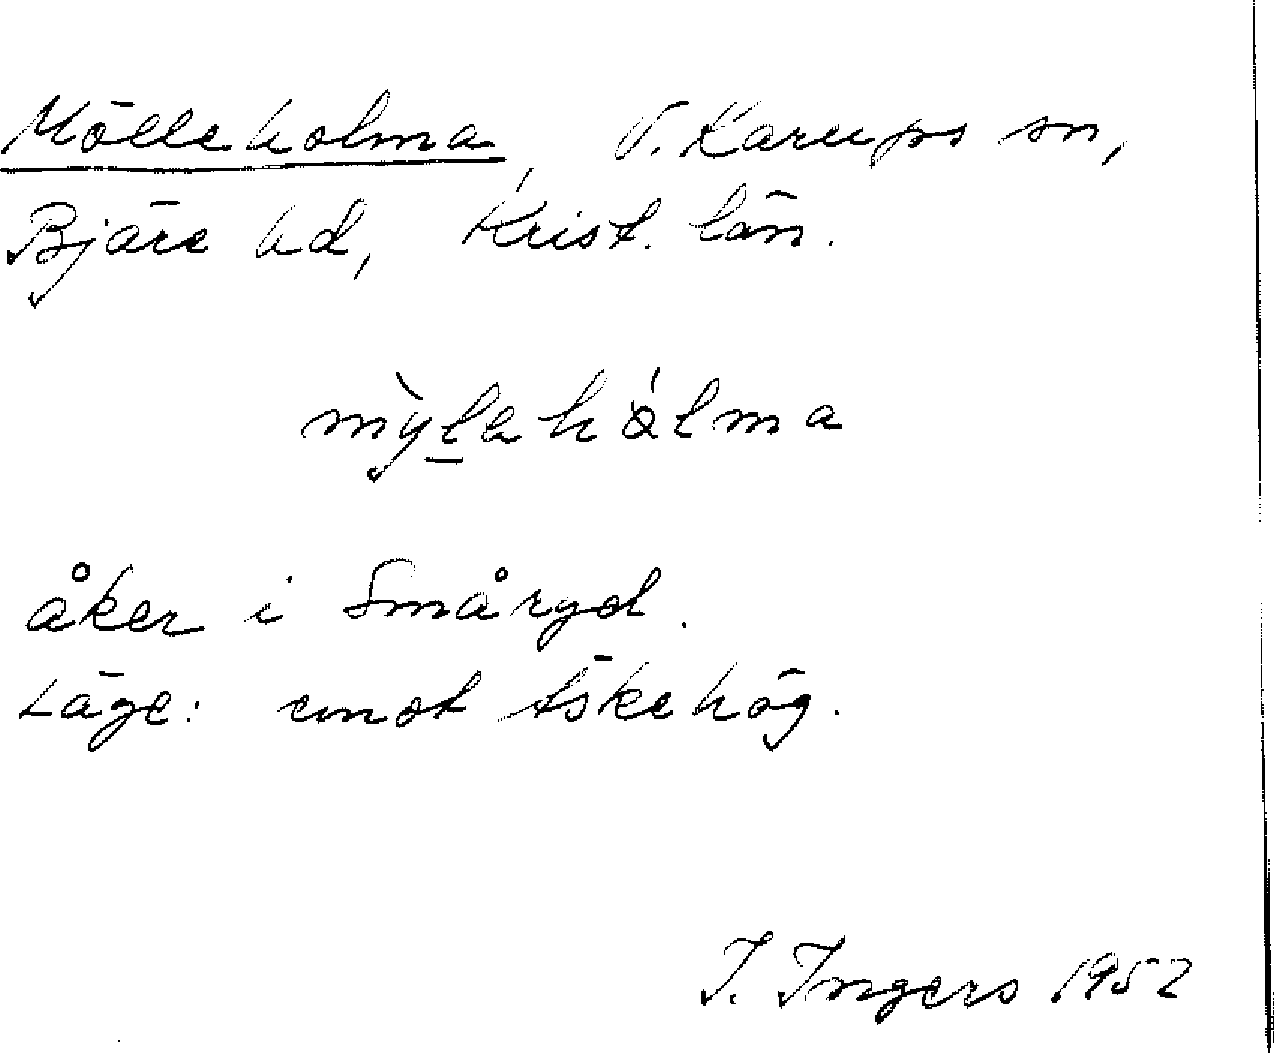 Mölleholma, V. Karups sn,
Bjäre hd, Krist. län.
mỳlahólma
åker i Smäryd.
Läge: emot Äskehög.
I. Ingers 1952